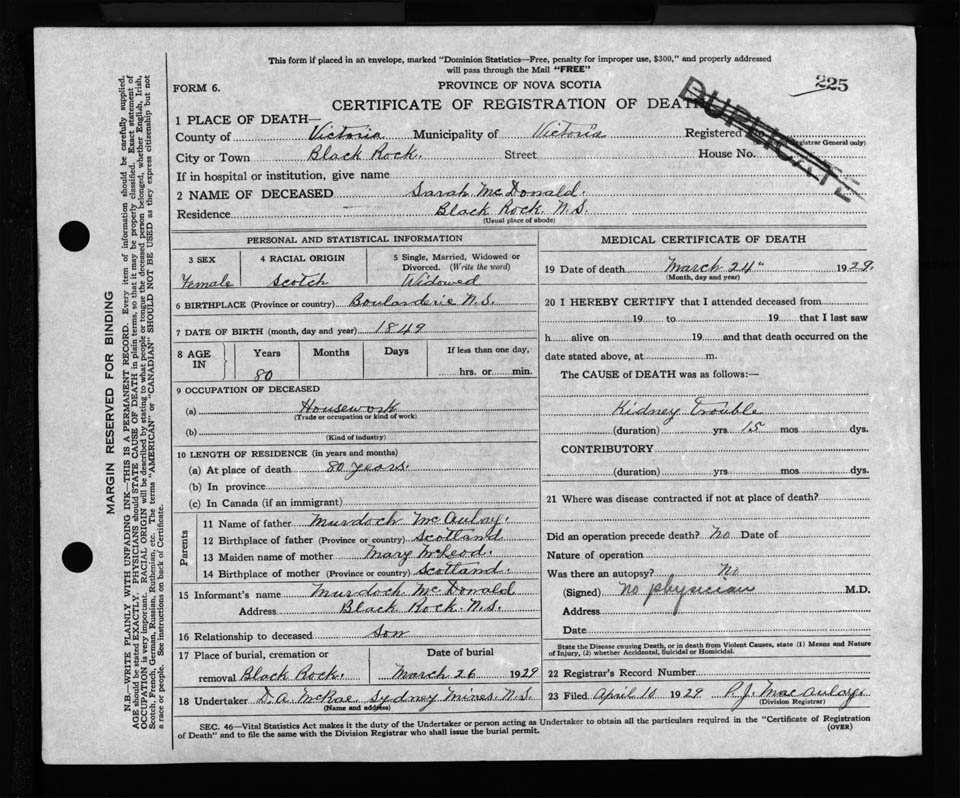 This form if placed in an envelope, marked "Dominion Statistics—Free, penalty for improper use, $300," and properly addressed
will pass through the Mail "FREE"
FORM 6.
PROVINCE OF NOVA SCOTIA
225
CERTIFICATE OF REGISTRATION OF DEATH
DUPLICATE
1 PLACE OF DEATH—
County of Victoria Municipality of Victoria Registered No
(Registrar General only)
City or Town Black Rock. Street House No.
If in hospital or institution, give name
2 NAME OF DECEASED Sarah McDonald.
Residence Black Rock. N.S.
(Usual place of abode)
PERSONAL AND STATISTICAL INFORMATION
3 SEX 4 RACIAL ORIGIN 5 Single, Married, Widowed or
Divorced. (Write the word)
Female Scotch Widowed
6 BIRTHPLACE (Province or country) Boularderie N.S.
7 DATE OF BIRTH (month, day and year) 1849
8 AGE IN Years Months Days If less than one day,
80 hrs. or min.
9 OCCUPATION OF DECEASED
(a) Housework
(Trade or occupation or kind of work)
(b)
(Kind of industry)
10 LENGTH OF RESIDENCE (in years and months)
(a) At place of death 80 years.
(b) In province
(c) In Canada (if an immigrant)
Parents
11 Name of father Murdoch McAulay.
12 Birthplace of father (Province or country) Scotland
13 Maiden name of mother Mary McLeod.
14 Birthplace of mother (Province or country) Scotland.
15 Informant's name Murdoch McDonald
Address Black Rock. N.S.
16 Relationship to deceased son
17 Place of burial, cremation or Date of burial
removal Black Rock. March 26 1929
18 Undertaker D. A. McRae, Sydney Mines. N.S.
(Name and address)
MEDICAL CERTIFICATE OF DEATH
19 Date of death March 24" 1929.
(Month, day and year)
20 I HEREBY CERTIFY that I attended deceased from
19 to 19 that I last saw
h alive on 19 and that death occurred on the
date stated above, at m.
The CAUSE of DEATH was as follows:—
Kidney Trouble
(duration) yrs 15 mos dys.
CONTRIBUTORY
(duration) yrs mos dys.
21 Where was disease contracted if not at place of death?
Did an operation precede death? No Date of
Nature of operation
Was there an autopsy? No
(Signed) No physician M.D.
Address
Date
State the Disease causing Death, or in death from Violent Causes, state (1) Means and Nature
of Injury, (2) whether Accidental, Suicidal or Homicidal.
22 Registrar's Record Number
23 Filed April 10 1929 P. J. MacAulay.
(Division Registrar)
SEC. 46—Vital Statistics Act makes it the duty of the Undertaker or person acting as Undertaker to obtain all the particulars required in the "Certificate of Registration
of Death" and to file the same with the Division Registrar who shall issue the burial permit.
(OVER)
MARGIN RESERVED FOR BINDING
N.B.—WRITE PLAINLY WITH UNFADING INK—THIS IS A PERMANENT RECORD. Every item of information should be carefully supplied.
AGE should be stated EXACTLY. PHYSICIANS should STATE CAUSE OF DEATH in plain terms, so that it may be properly classified. Exact statement of
OCCUPATION is very important. RACIAL ORIGIN will be described by stating to what people or tongue the deceased person belonged, whether English, Irish,
Scotch, French, German, Russian, Ruthenian, etc. The terms "AMERICAN" or "CANADIAN" SHOULD NOT BE USED as they express citizenship but not
a race or people. See instructions on back of Certificate.